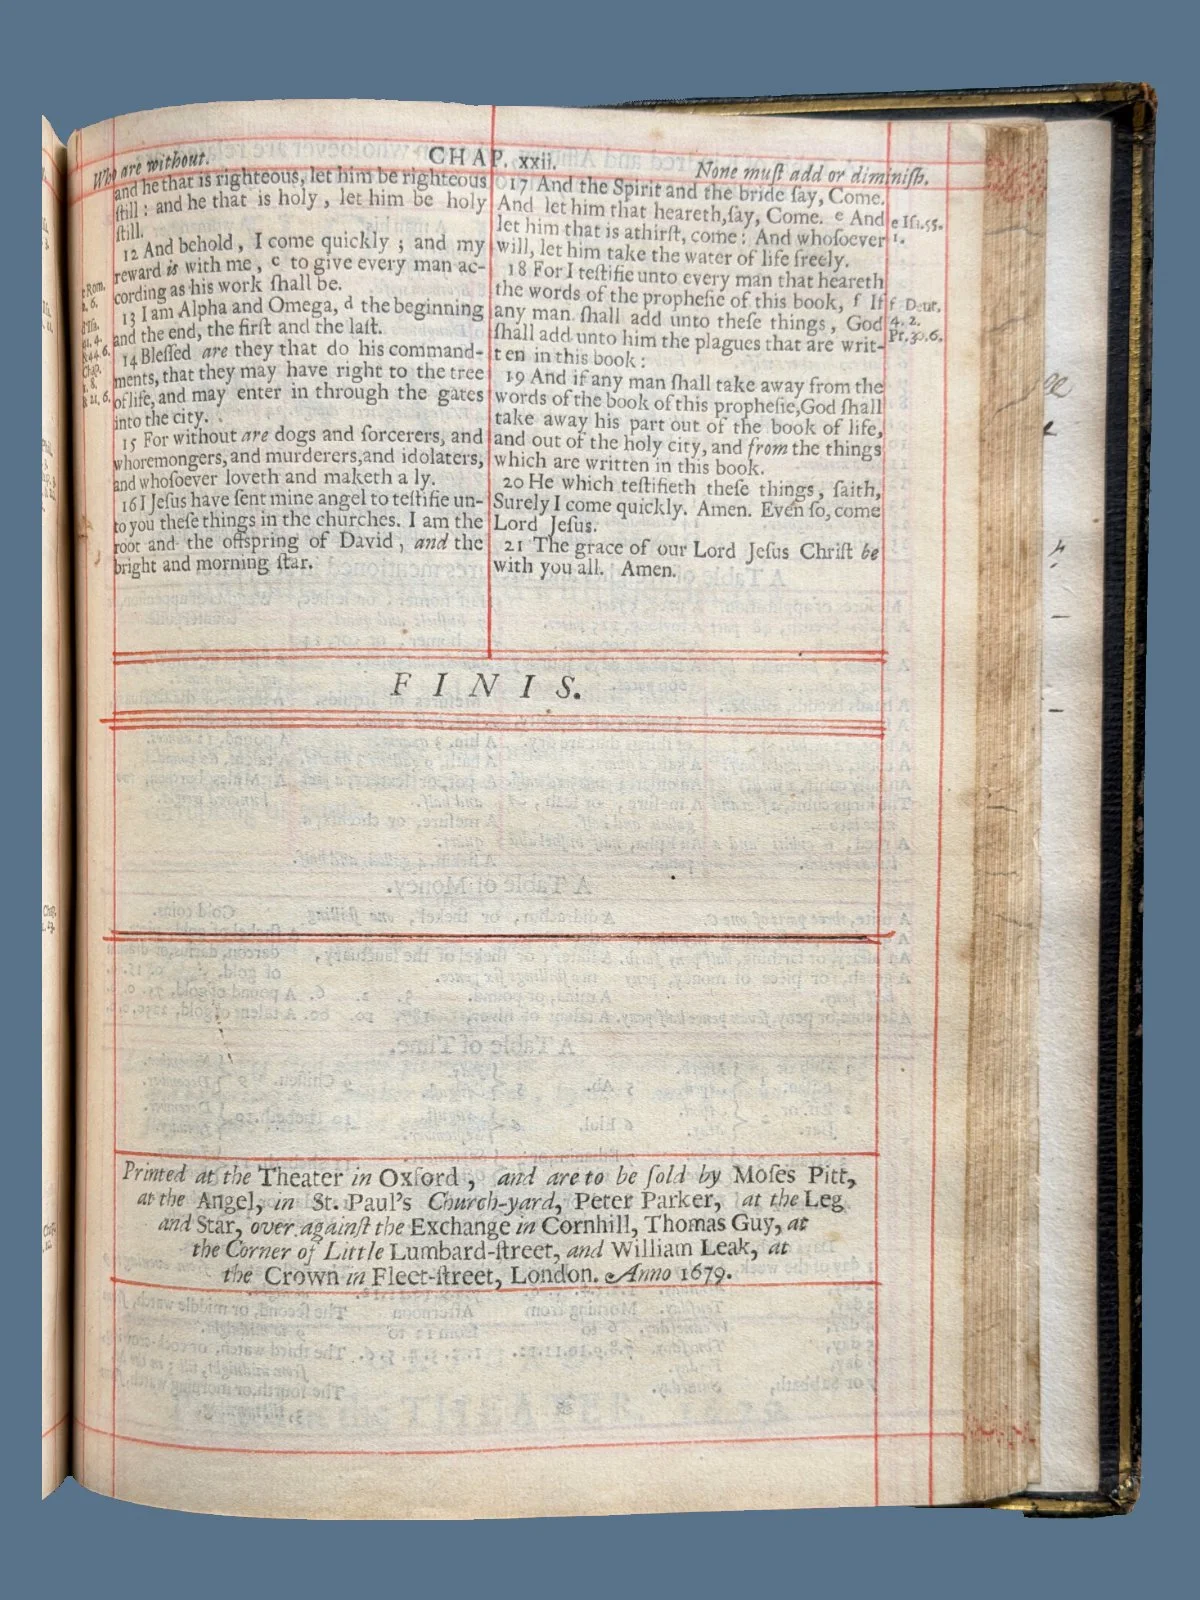 Who are without.
CHAP. xxii.
None muſt add or diminiſh.
and he that is righteous, let him be righteous
ſtill : and he that is holy , let him be holy
ſtill.
12 And behold , I come quickly ; and my
reward is with me , c to give every man ac-
cording as his work ſhall be.
13 I am Alpha and Omega, d the beginning
and the end, the firſt and the laſt.
14 Bleſſed are they that do his command-
ments, that they may have right to the tree
of life, and may enter in through the gates
into the city.
15 For without are dogs and ſorcerers, and
whoremongers, and murderers,and idolaters,
and whoſoever loveth and maketh a ly.
16 I Jeſus have ſent mine angel to teſtifie un-
to you theſe things in the churches. I am the
root and the offspring of David , and the
bright and morning ſtar.
Rom.
6.
44. 6.
& 21, 6.
17 And the Spirit and the bride ſay, Come.
And let him that heareth,ſay, Come. e And
let him that is athirſt, come : And whoſoever
will, let him take the water of life freely.
18 For I teſtifie unto every man that heareth
the words of the propheſie of this book, f If
any man ſhall add unto theſe things , God
ſhall add unto him the plagues that are writ-
ten in this book :
19 And if any man ſhall take away from the
words of the book of this propheſie,God ſhall
take away his part out of the book of life,
and out of the holy city, and from the things
which are written in this book.
20 He which teſtifieth theſe things , ſaith,
Surely I come quickly. Amen. Even ſo, come
Lord Jeſus.
21 The grace of our Lord Jeſus Chriſt be
with you all. Amen.
e Iſi.55.
1.
f Deut.
4. 2.
Pr.30.6.
FINIS.
Printed at the Theater in Oxford , and are to be ſold by Moſes Pitt,
at the Angel, in St. Paul's Church-yard, Peter Parker, at the Leg
and Star, over againſt the Exchange in Cornhill, Thomas Guy, at
the Corner of Little Lumbard-ſtreet, and William Leak, at
the Crown in Fleet-ſtreet, London. Anno 1679.